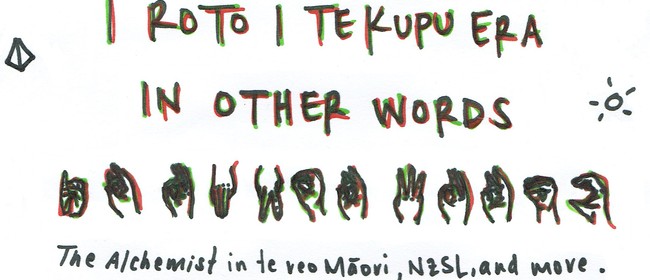 I ROTO I TE KUPU ERA
IN OTHER WORDS
The Alchemist in te reo Māori, NZSL, and more.